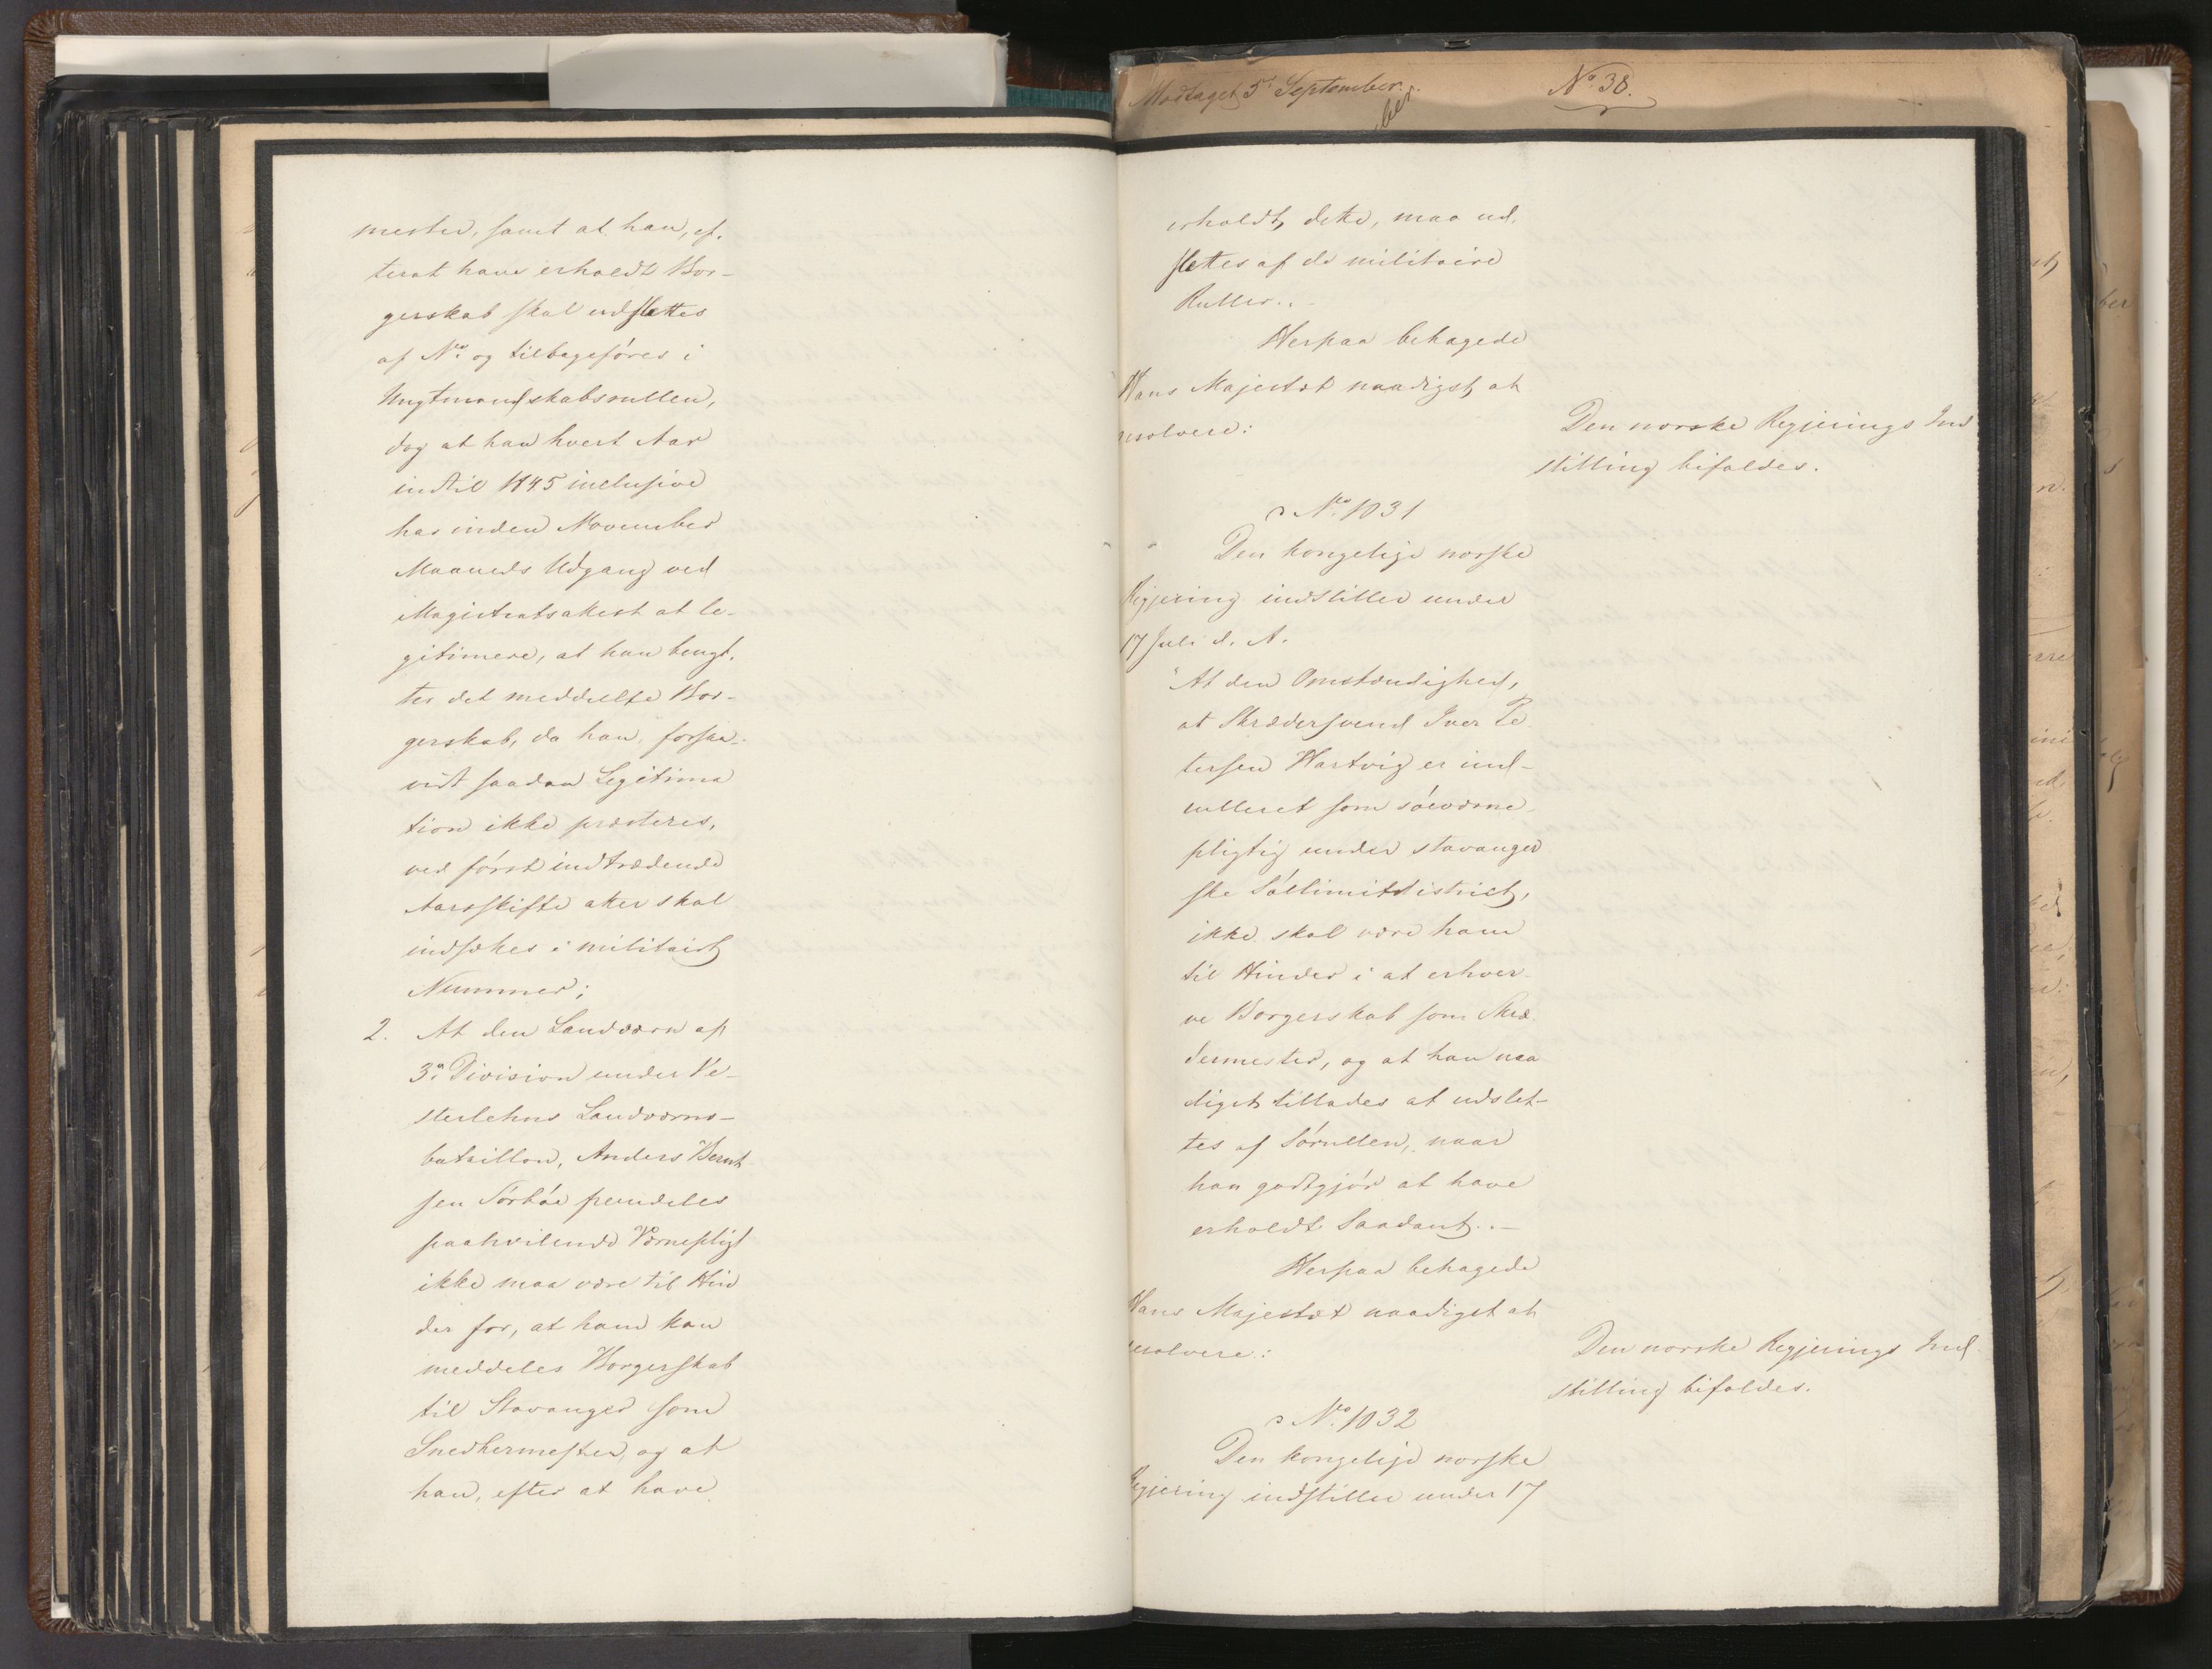 mester, samt at han, ef-
terat have erholdt Bor-
gerskab skal udslettes
af No. og tilbageføres i
Ungtmandskabsrullen,
dog at han hvert Aar
indtil 1845 inclusive
har inden November
Maaneds Udgang ved
Magistratsattest at le-
gitimere, at han benyt-
ter det meddeelte Bor-
gerskab, da han, forsaa-
vidt saadan Legitima
tion ikke præsteres,
ved først indtrædende
Aarsskifte atter skal
indsættes i militairt
Nummer;
2. At den Landværn af
3die Division under Ve-
sterlehns Landværns-
bataillon, Anders Bernt
sen Sørbøe fremdeles
paahvilende Værnepligt
ikke maa være til Hin
der for, at ham kan
meddeles Borgerskab
til Stavanger som
Snedkermester, og at
han, efter at have
Modtaget 5te September.
No 38.
ber
erholdt dette, maa ud-
slettes af de militaire
Ruller..
Herpaa behagede
Hans Majestæt naadigst at
resolvere:
Den norske Regjerings Ind
stilling bifaldes.
No. 1031
Den kongelige norske
Regjering indstiller under
17 Juli d. A.
"At den Omstændighed,
at Skrædersvend Iver Pe
tersen Hartvig er ind-
rulleret som søeværne-
pligtig under stavanger
ske Sølimitdistrict,
ikke skal være ham
til Hinder i at erhver-
ve Borgerskab som Skræ
dermester, og at han naa
digst tillades at udslet-
tes af Sørullen, naar
han godtgjør at have
erholdt Saadant..
Herpaa behagede
Hans Majestæt naadigst at
resolvere:
Den norske Regjerings Ind-
stilling bifaldes.
No. 1032
Den kongelige norske
Regjering indstiller under 17